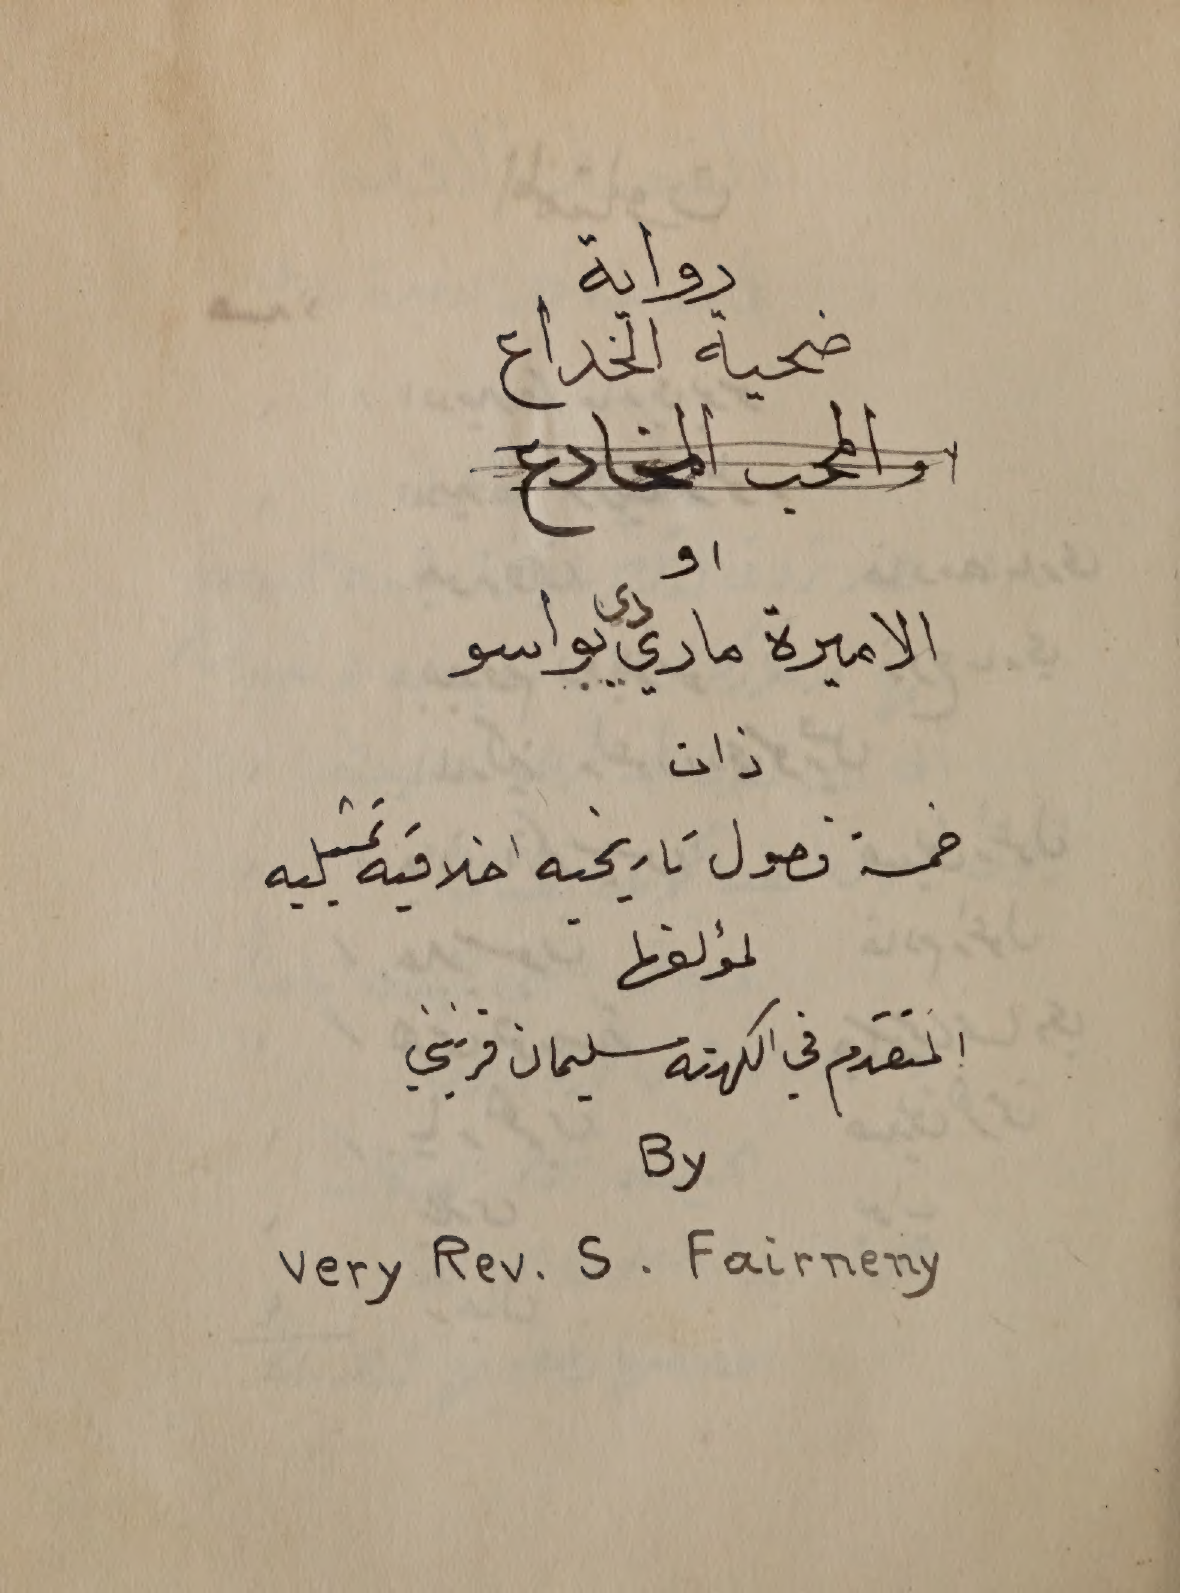 رواية
ضحية الخداع
او المحب المخادع
او
الاميرة ماري دي بواسو
ذات
خمسة فصول تاريخيه اخلاقيه تمثيليه
لمؤلفها
المتقدم في الكهنة سليمان فرنيني
By
Very Rev. S. Fairneny